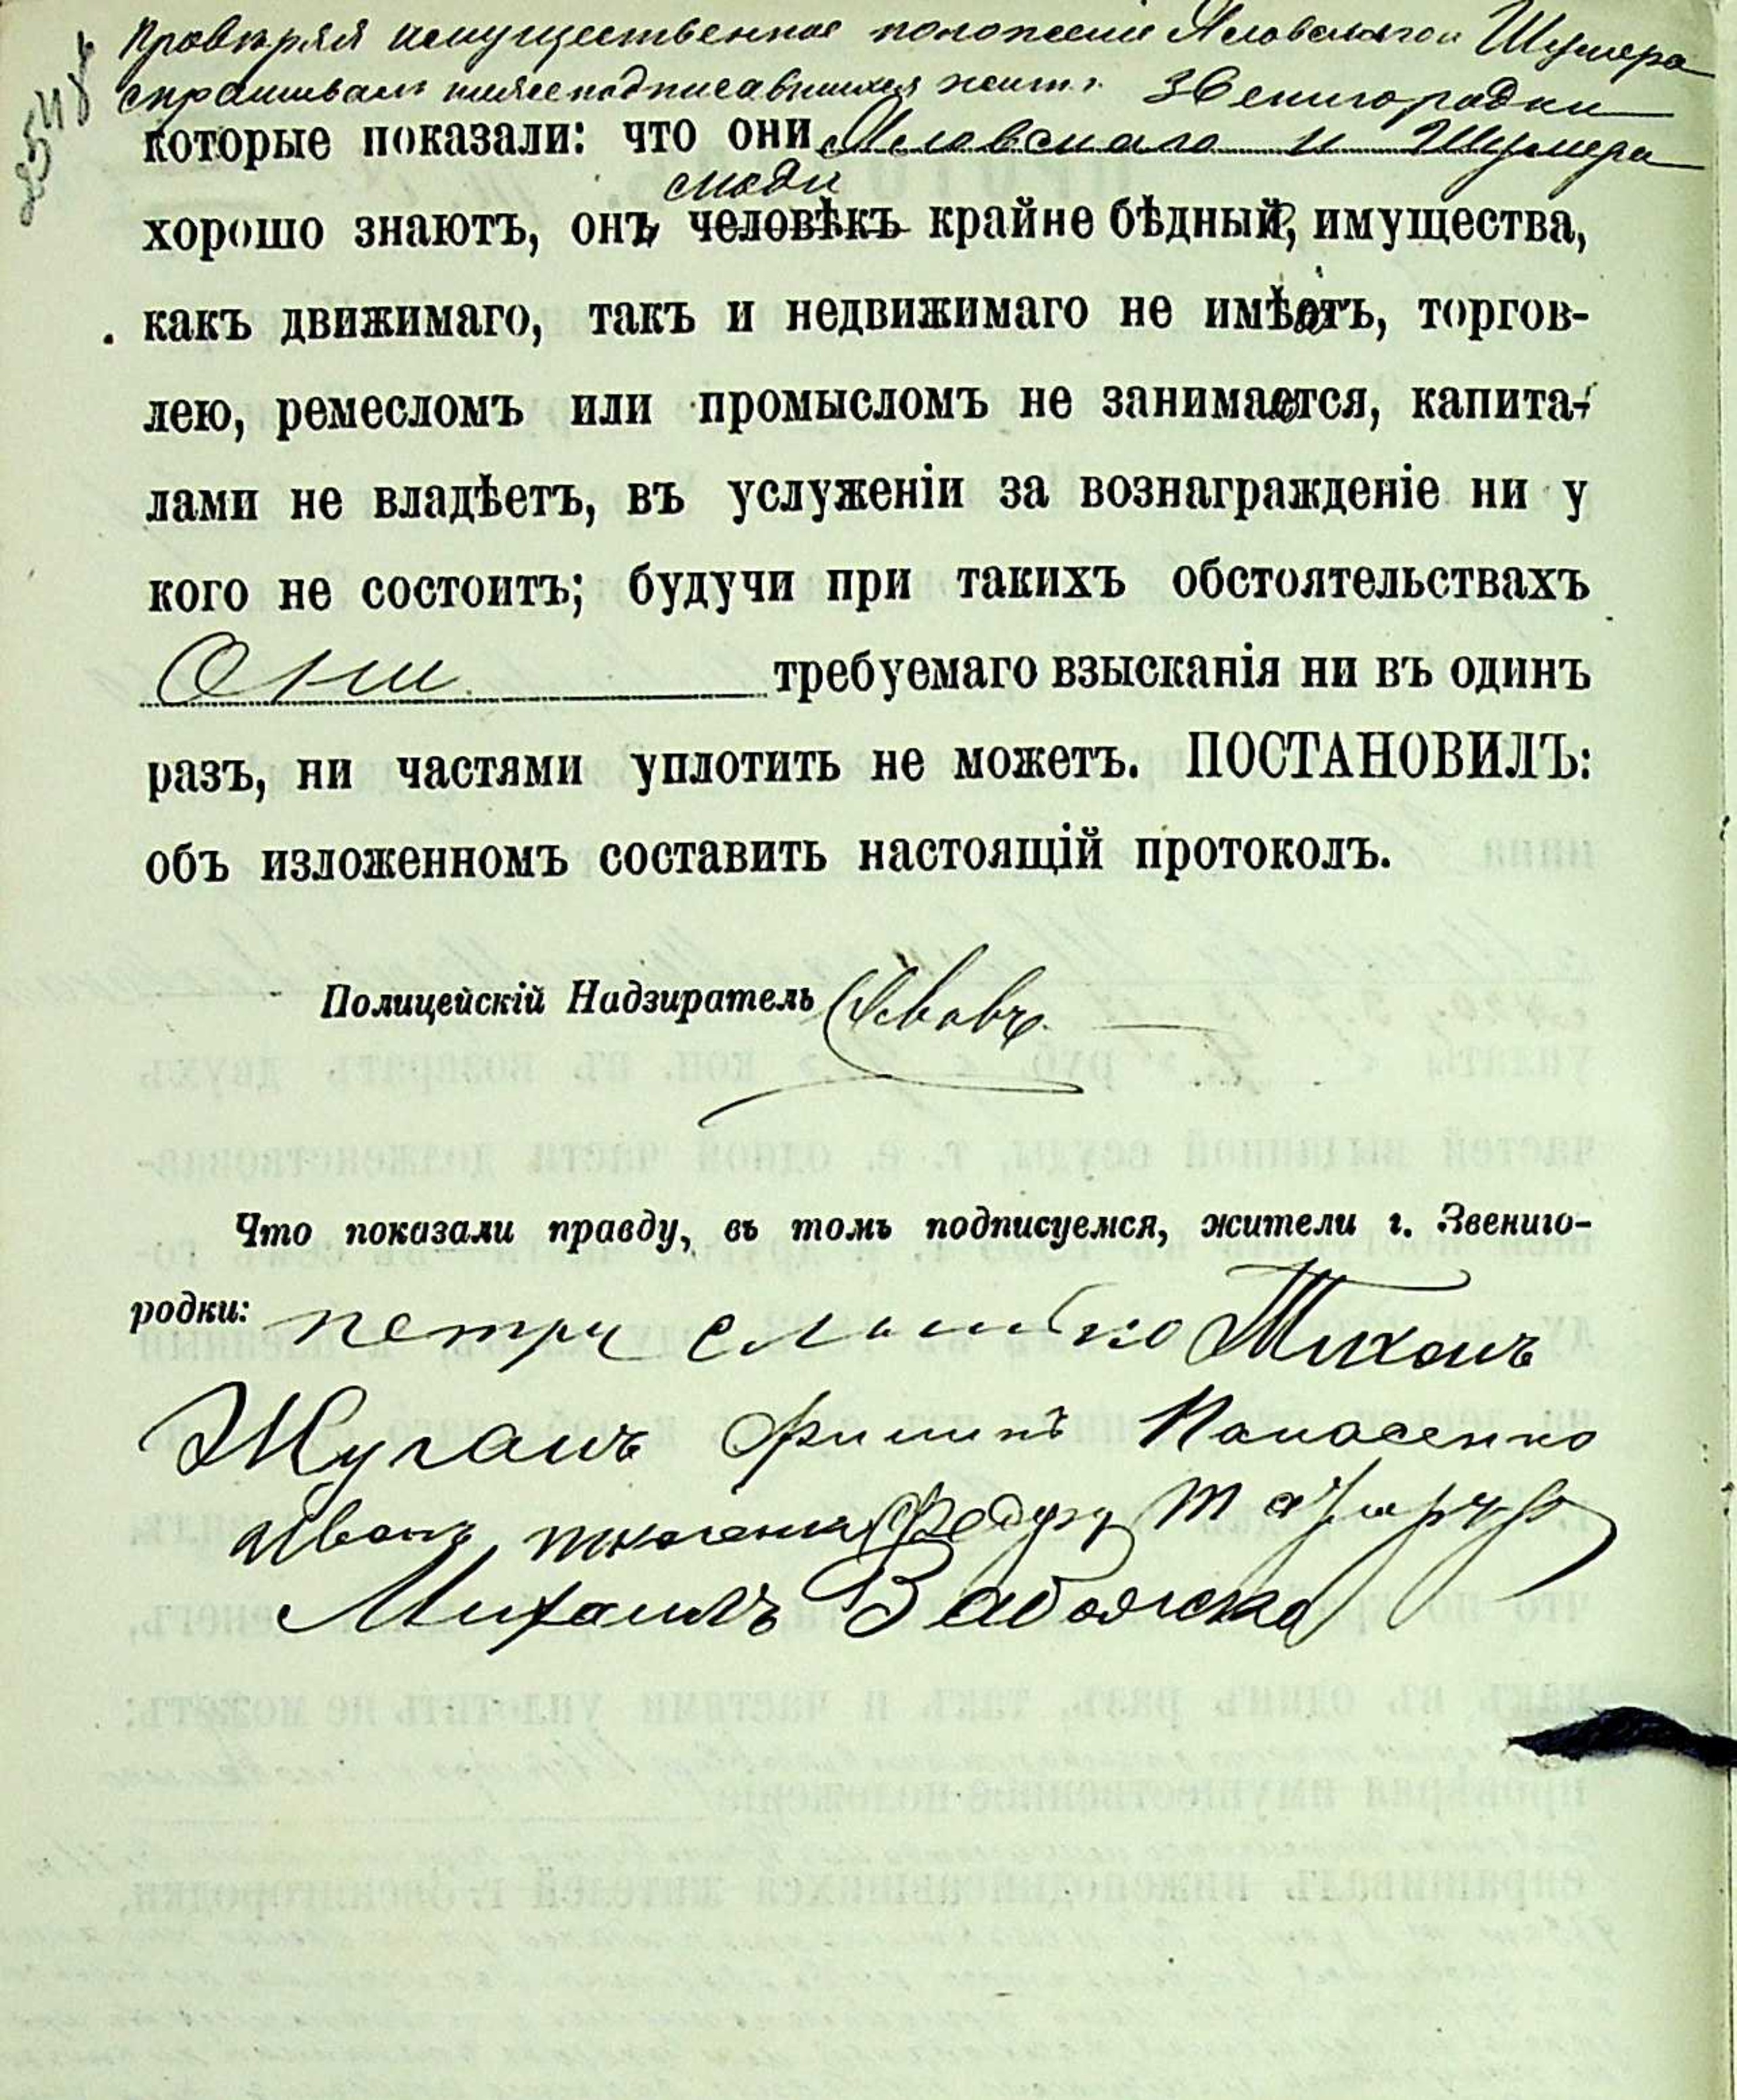 Провѣряя имущественное положеніе Яловскаго и Шумера
спрашивалъ нижеподписавшихся жит. г. Звенигородки
которые показали: что они Яловскаго и Шумера
люди
хорошо знаютъ, онъ человѣкъ крайне бѣдный, имущества,
какъ движимаго, такъ и недвижимаго не имѣетъ, торгов-
лею, ремесломъ или промысломъ не занимается, капита-
лами не владѣетъ, въ услуженіи за вознагражденіе ни у
кого не состоитъ; будучи при такихъ обстоятельствахъ
Они требуемаго взысканія ни въ одинъ
разъ, ни частями уплотить не можетъ. ПОСТАНОВИЛЪ:
объ изложенномъ составить настоящій протоколъ.
Полицейскій Надзиратель
Что показали правду, въ томъ подписуемся, жители г. Звениго-
родки: петръ Тихонъ
Жуганъ Филипъ Панасенко
Иванъ Федоръ
Михаилъ